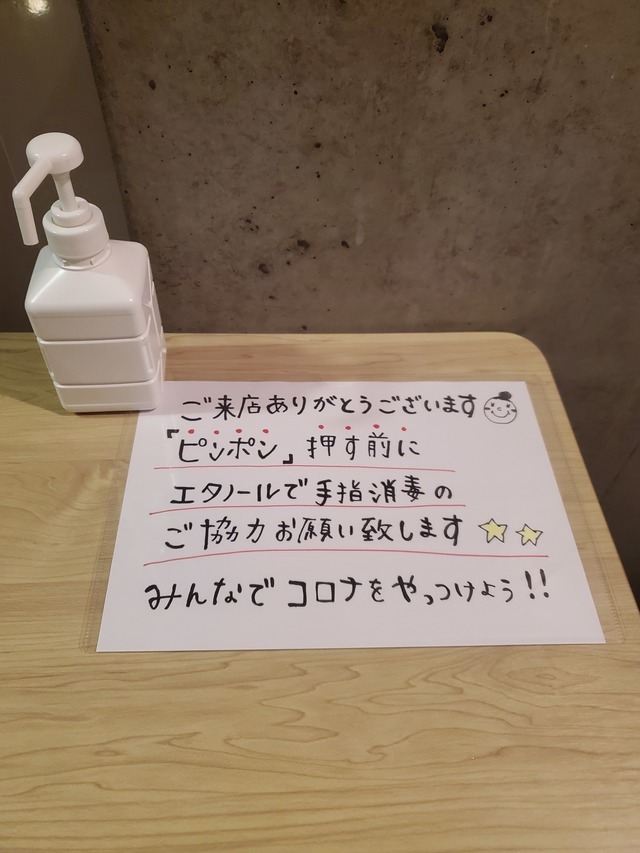 ご来店ありがとうございます
「ピンポン」押す前に
エタノールで手指消毒の
ご協力お願い致します
みんなでコロナをやっつけよう!!